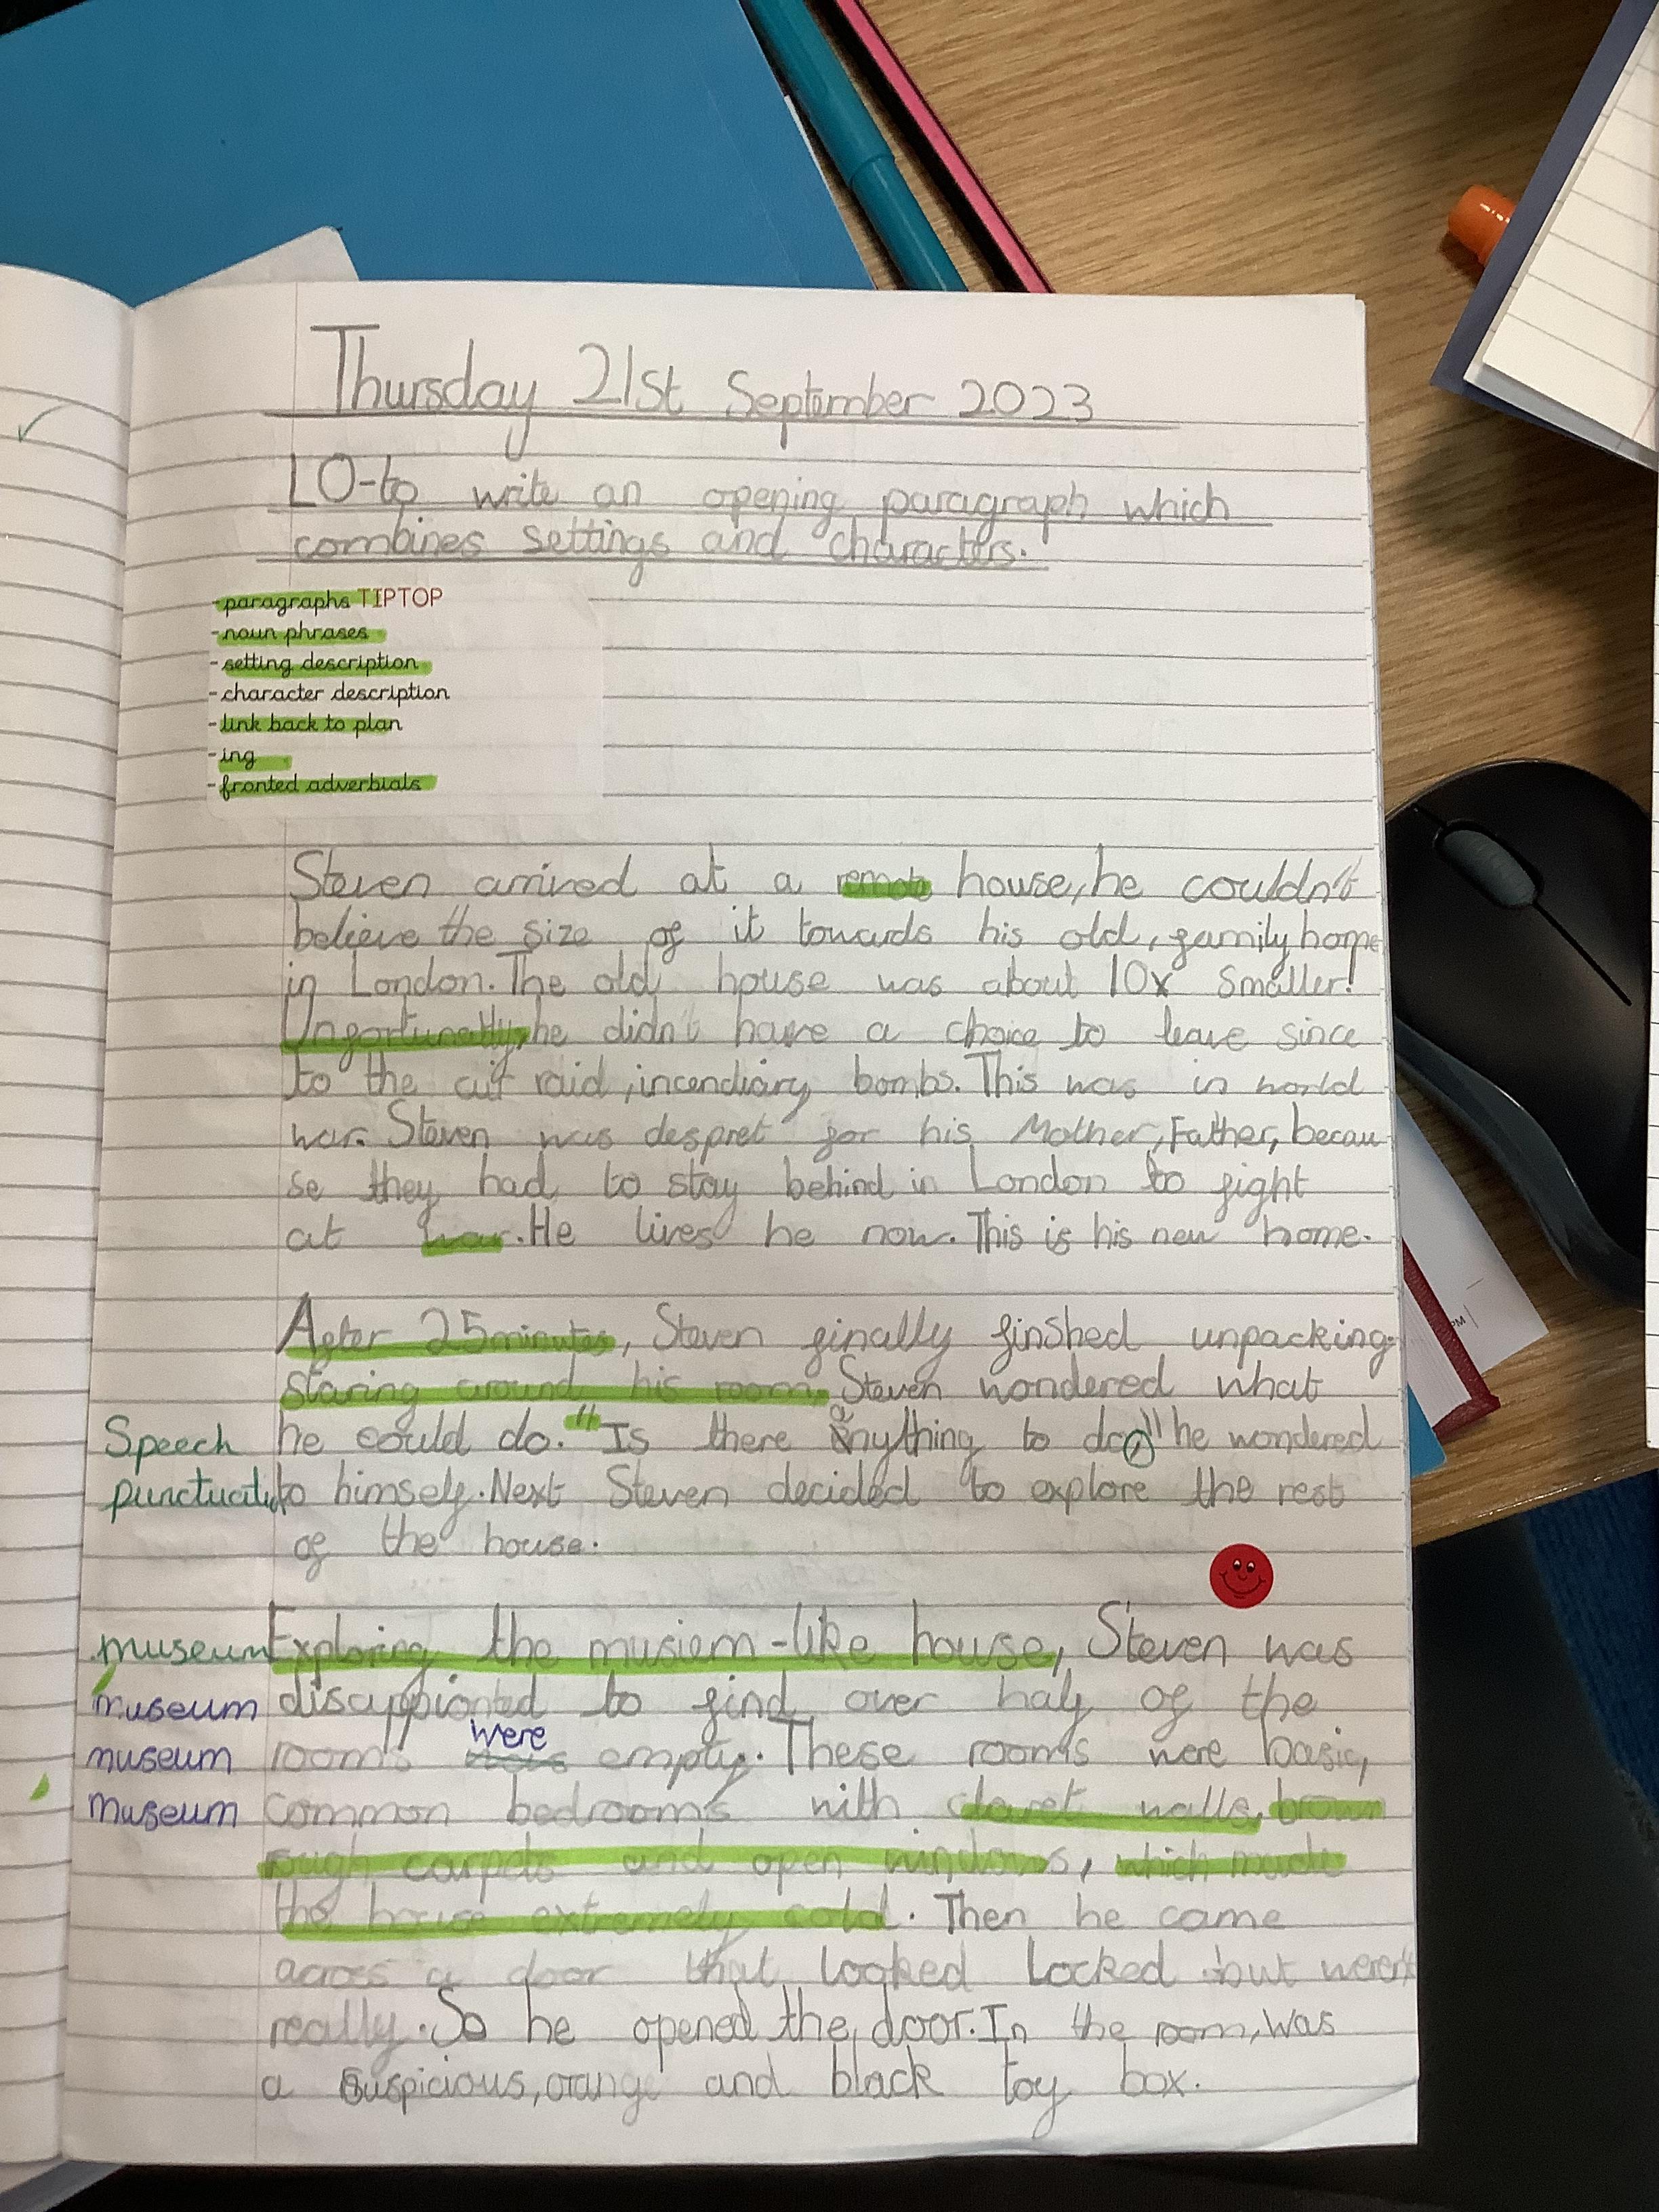 Thursday 21st September 2023
LO-to write an opening paragraph which
combines settings and characters.
-paragraphs TIPTOP
-noun phrases
-setting description
-character description
-link back to plan
-ing
-fronted adverbials
Steven arrived at a remote house, he couldn't
believe the size of it towards his old, family home
in London. The old house was about 10x smaller!
Unfortunatly, he didn't have a choice to leave since
to the air raid, incendiary bombs. This was in world
war. Steven was despret for his Mother, Father, becau
se they had to stay behind in London to fight
at war. He lives he now. This is his new home.
After 25 minutes, Steven finally finshed unpacking.
staring around his room, Steven wondered what
he could do. "Is there anything to do," he wondered
Speech
punctuation
to himself. Next Steven decided to explore the rest
of the house.
museum
Exploring the musiem-like house, Steven was
museum
disappionted to find over half of the
museum
rooms were empty. These rooms were basic,
museum
common bedrooms with claret walls, brown
rough carpets and open windows, which made
the house extremely cold. Then he came
across a door that looked locked but weren't
really. So he opened the door. In the room, was
a suspicious, orange and black toy box.
PM